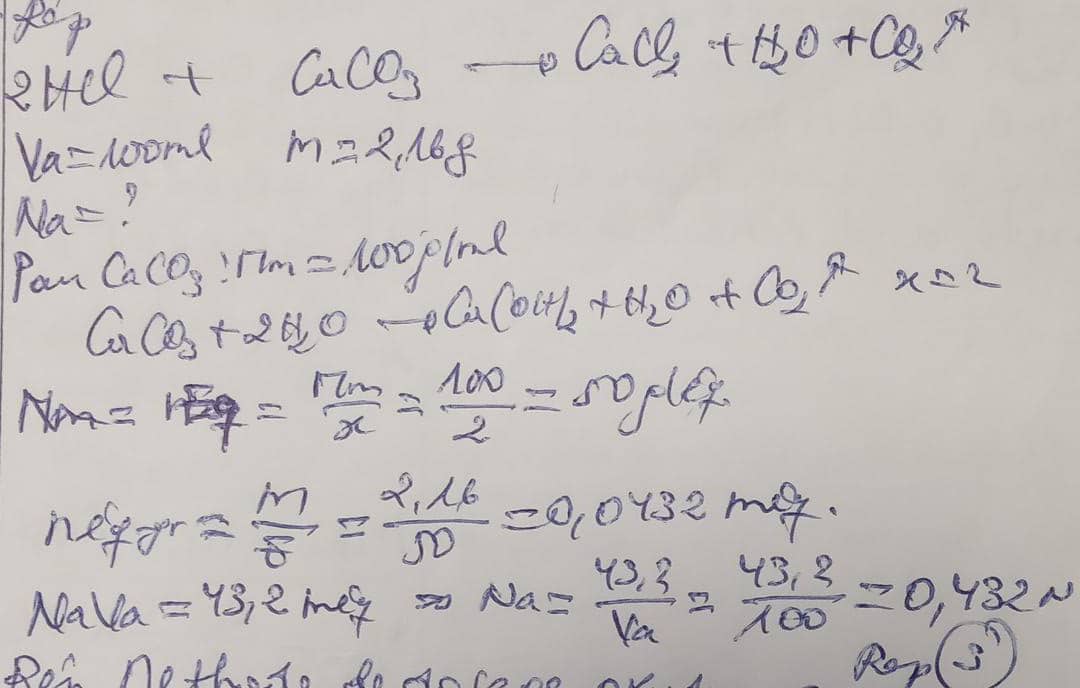 Rép
2HCl + CaCO₃ → CaCl₂ + H₂O + CO₂↑
Va = 100ml m = 2,16g
Na = ?
Pour CaCO₃ : Mm = 100g/ml
CaCO₃ + 2H₂O → Ca(OH)₂ + H₂O + CO₂↑ x = 2
Nm = Eq = Mm/x = 100/2 = 50g/éq
néq gr = m/E = 2,16/50 = 0,0432 méq.
NaVa = 43,2 méq ⇒ Na = 43,2/Va = 43,2/100 = 0,432 N
Rep (3)
Rép Méthode de dosage